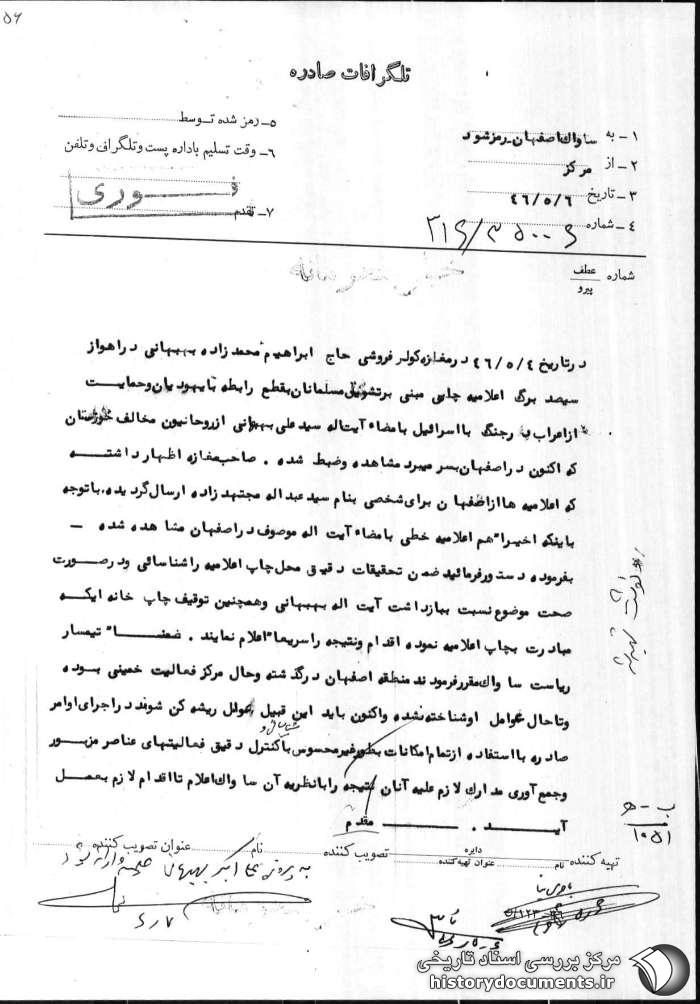 ۵۶
تلگرافات صادره
۱- به ساواک اصفهان - رمز شود
۲- از مرکز
۳- تاریخ ۴۶/۵/۶
۴- شماره ۳۱۶/۳۵۰۰۶
۵- رمز شده توسط
۶- وقت تسلیم باداره پست وتلگراف وتلفن
۷- تقدم فوری
شماره عطف
پیرو
در تاریخ ۴۶/۵/۴ در مغازه کولر فروشی حاج ابراهیم محمد زاده بهبهانی در اهواز
سیصد برگ اعلامیه چاپی مبنی بر تشویق مسلمانان بقطع رابطه با یهودیان وحمایت
از اعراب در جنگ با اسرائیل بامضاء آیت اله سید علی بهبهانی از روحانیون مخالف خوزستان
که اکنون در اصفهان بسر میبرد مشاهده وضبط شده . صاحب مغازه اظهار داشته
که اعلامیه ها از اصفهان برای شخصی بنام سید عبد اله مجتهد زاده ارسال گردیده. با توجه
باینکه اخیرا" هم اعلامیه خطی بامضاء آیت اله موصوف در اصفهان مشاهده شده -
بفرموده دستور فرمائید ضمن تحقیقات دقیق محل چاپ اعلامیه را شناسائی ودر صورت
صحت موضوع نسبت ببازداشت آیت اله بهبهانی وهمچنین توقیف چاپ خانه ایکه
مبادرت بچاپ اعلامیه نموده اقدام ونتیجه را سریعا" اعلام نمایند . ضمنا" تیمسار
ریاست ساواک مقرر فرمودند منطقه اصفهان در گذشته وحال مرکز فعالیت خمینی بوده
وتا حال عوامل او شناخته نشده واکنون باید این قبیل عوامل ریشه کن شوند در اجرای اوامر
صادره با استفاده از تمام امکانات بطور غیر محسوس با کنترل دقیق فعالیتهای عناصر مزبور
وجمع آوری مدارک لازم علیه آنان نتیجه را با نظریه آن ساواک اعلام تا اقدام لازم بعمل
آید . مقدم
تهیه کننده نام دایره عنوان تهیه کننده تصویب کننده نام عنوان تصویب کننده
ب - ه
۱۰۵۱
مرکز بررسی اسناد تاریخی
historydocuments.ir